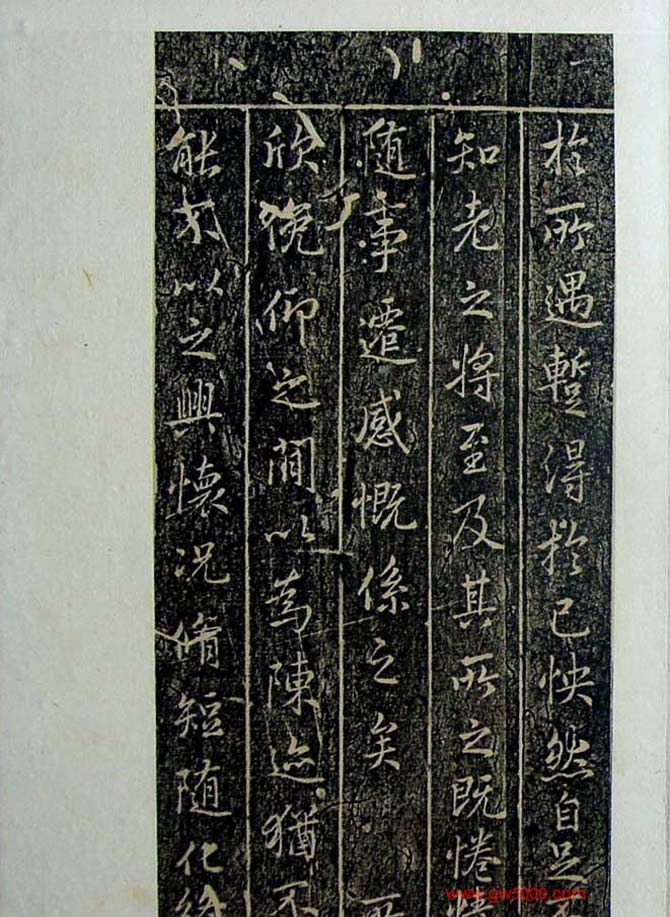 於所遇暫得於己怏然自足
知老之將至及其所之既惓
随事遷感慨係之矣
欣俛仰之間以為陳迹猶不
能不以之興懷況脩短随化
www.gw5000.com